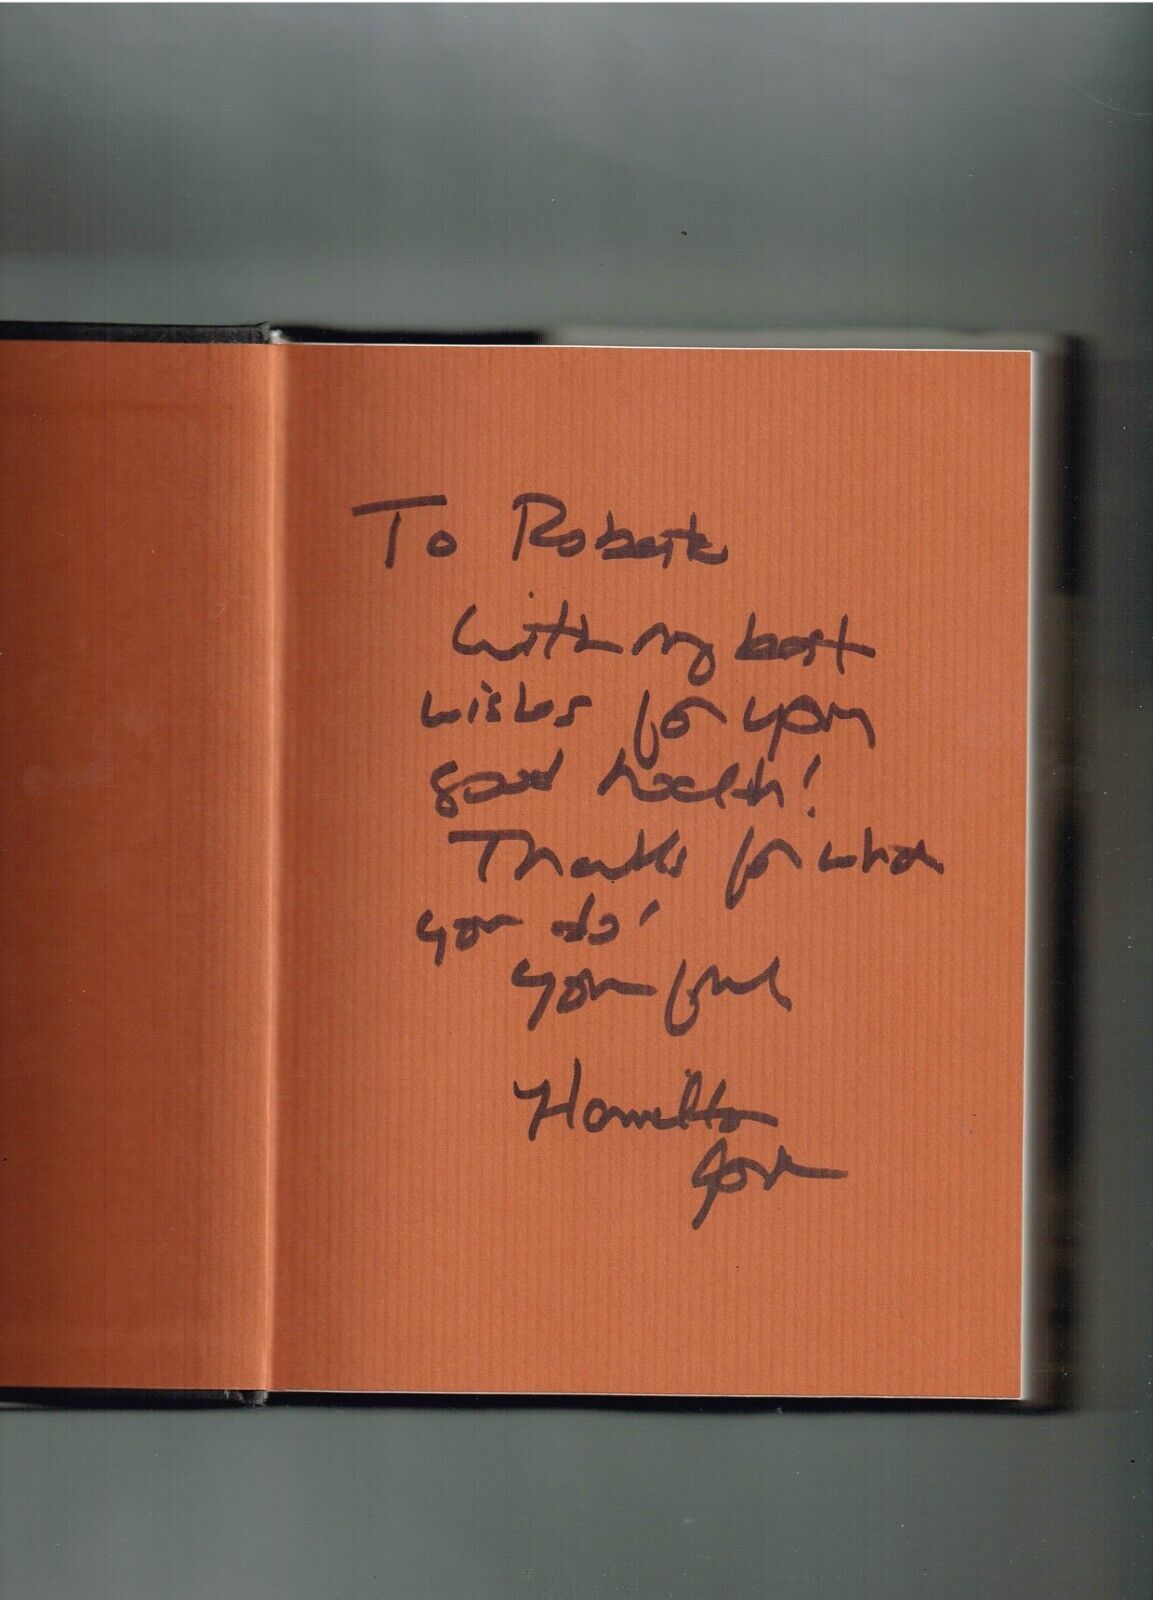 To Roberta
With my best
wishes for your
good health!
Thanks for what
you do!
Your friend
Hamilton
Jordan